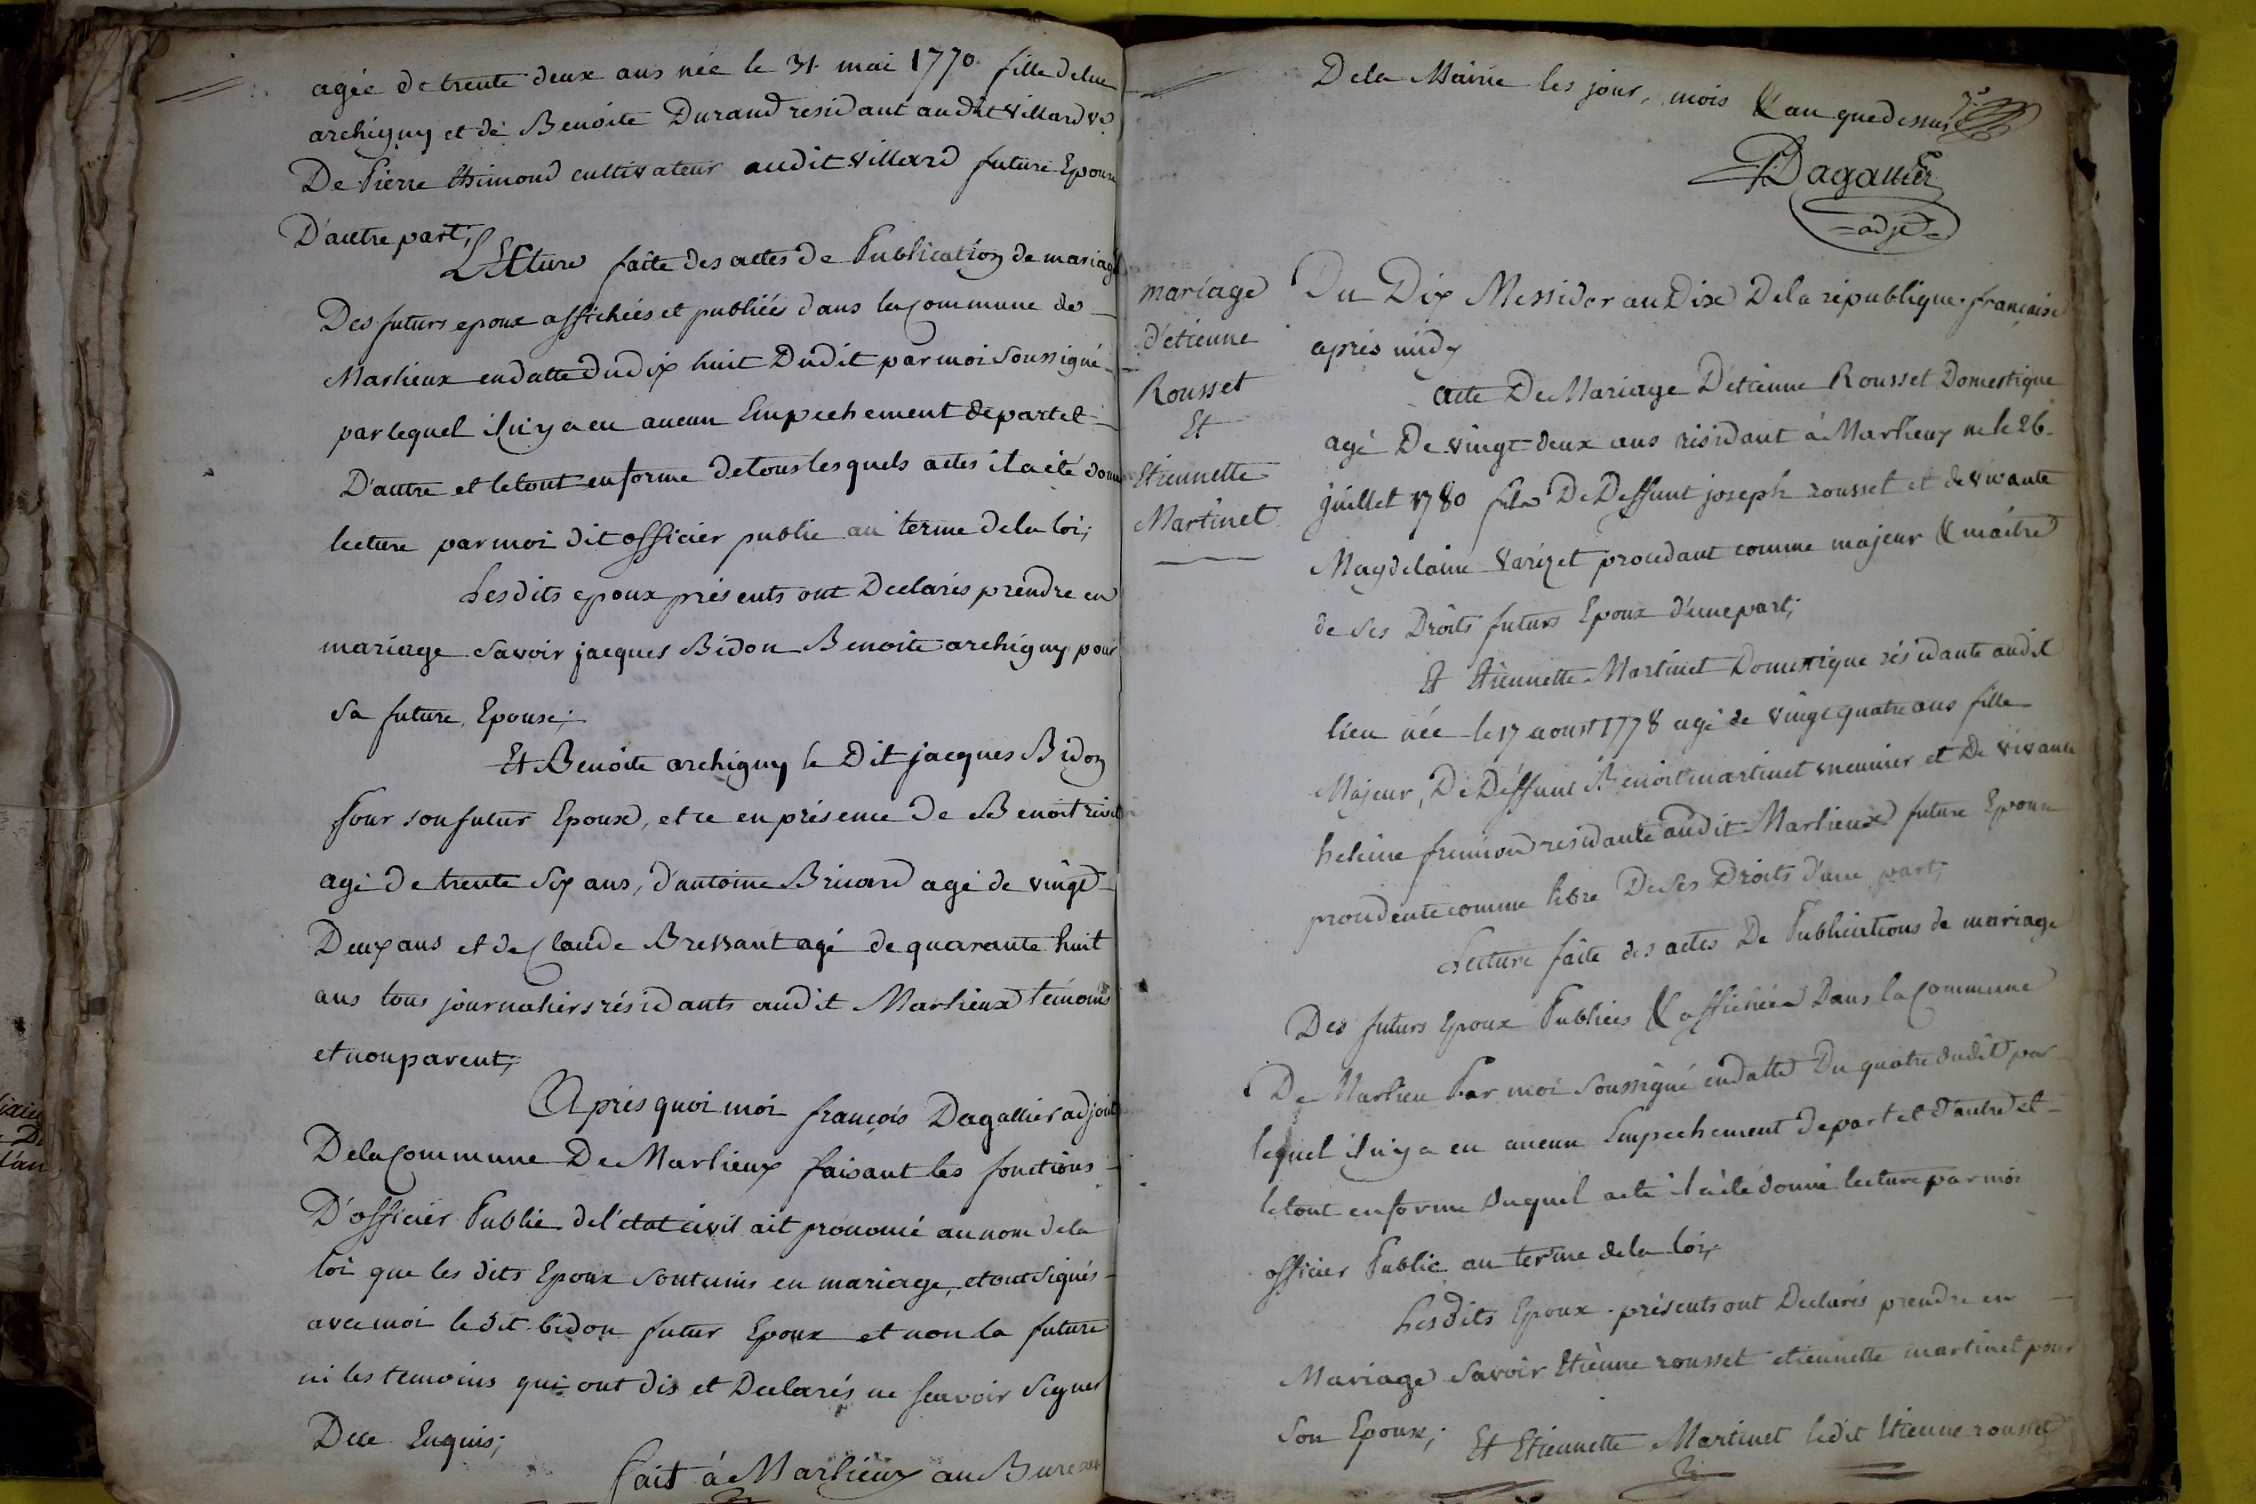 agée de trente deux ans née le 31 mai 1770 fille de luc
archigny et de Benoite Durand residant audit villard ve
De Pierre Thimond cultivateur audit villard future Epouse
D'autre part;
Lecture faite des actes de Publication de mariage
Des futurs epoux affichées et publiées dans la commune de
Marlieux en datte du dix huit Dudit par moi soussigné
par lequel il n'y a eu aucun Empechement de part et
D'autre et le tout en forme de tous lesquels actes il a été donné
lecture par moi dit officier public au terme de la loi;
Lesdits epoux présents ont Declarés prendre en
mariage savoir jacques Bidon Benoite archigny pour
sa future Epouse;
Et Benoite archigny le Dit jacques Bidon
Pour son futur Epoux, et ce en présence de Benoit
agé de trente six ans, d'antoine Bruard agé de vingt
Deux ans et de Claude Bressant agé de quarante huit
ans tous journaliers résidants audit Marlieux témoins
et non parent;
Après quoi moi françois Dagallier adjoint
De la Commune De Marlieux faisant les fonctions
D'officier Public de l'état civil ait prononcé au nom de la
loi que les dits Epoux sont unis en mariage, et ont signés
avec moi le dit bidon futur Epoux et non la future
ni les temoins qui ont dis et Declarés ne scavoir signer
De ce Enquis;
fait à Marlieux au Bureau
De la Mairie les jour, mois & an que dessus
Dagallier
adjt
mariage
d'etienne
Rousset
Et
Etiennette
Martinet
Du Dix Messidor an Dix De la republique française
après midy
acte De Mariage D'etienne Rousset Domestique
agé De vingt deux ans résidant à Marlieux né le 26
juillet 1780 fils De Deffunt joseph rousset et de vivante
Magdelaine Varizet procedant comme majeur & maitre
de ses Droits futurs Epoux d'une part;
Et Etiennette Martinet Domestique résidante audit
lieu née le 17 aoust 1778 agé de vingt quatre ans fille
Majeur, De Deffunt Benoit martinet meunier et De vivante
heleine fremiond residante audit Marlieux future Epouse
procedente comme libre De ses Droits d'une part;
Lecture faite des actes De Publications de mariage
Des futurs Epoux Publiées & affichées Dans la Commune
De Marlieu Par moi soussigné en datte Du quatre dudit par
lequel il n'y a eu aucun Empechement de part et d'autre et
le tout en forme duquel acte il a été donné lecture par moi
officier Public au terme de la loi;
Lesdits Epoux présents ont Declarés prendre en
Mariage savoir Etienne rousset etiennette martinet pour
son Epouse;
Et Etiennette Martinet ledit Etienne rousset